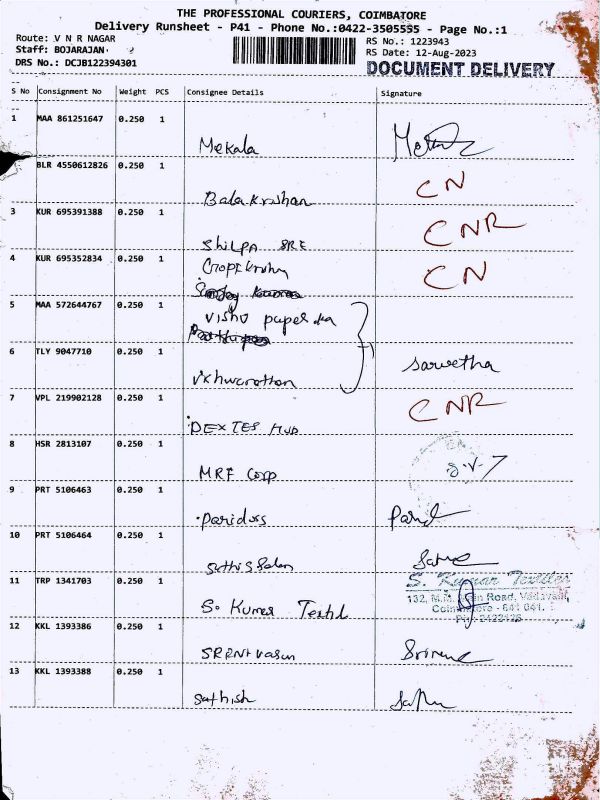 THE PROFESSIONAL COURIERS, COIMBATORE
Delivery Runsheet - P41 - Phone No.:0422-3505555 - Page No.:1
Route: V N R NAGAR
RS No.: 1223943
Staff: BOJARAJAN
RS Date: 12-Aug-2023
DRS No.: DCJB122394301
DOCUMENT DELIVERY
S No Consignment No Weight PCS Consignee Details Signature
1 MAA 861251647 0.250 1
Mekala
BLR 4550612826 0.250 1
CN
Balakrishnan
3 KUR 695391388 0.250 1
CNR
Shilpa SRE
4 KUR 695352834 0.250 1
CN
5 MAA 572644767 0.250 1
Vishu paper
6 TLY 9047710 0.250 1
sarwetha
7 VPL 219902128 0.250 1
CNR
DEXTES HUB
8 HSR 2813107 0.250 1
S.V.7
MRF Corp
9 PRT 5106463 0.250 1
Paridoss
10 PRT 5106464 0.250 1
11 TRP 1341703 0.250 1
S. Kumar Textiles
132, M.M. Main Road, Vadavalli,
Coimbatore - 641 041.
S. Kumar Textil
12 KKL 1393386 0.250 1
SRENIVASUN
13 KKL 1393388 0.250 1
Sathish